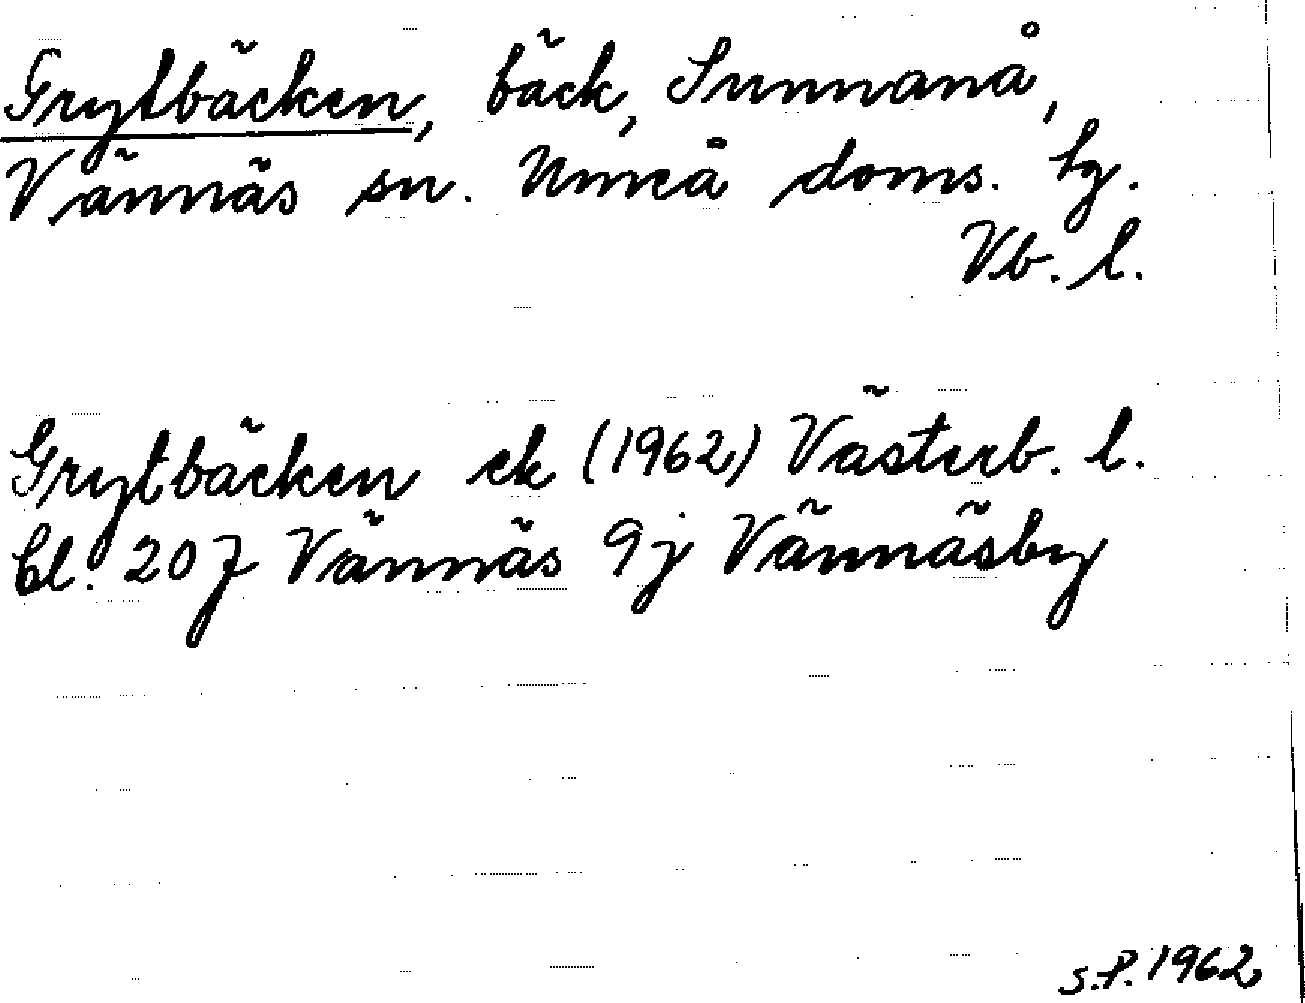 Grytbäcken, bäck, Sunnanå,
Vännäs sn. Umeå doms. lg.
Vb. l.
Grytbäcken ek (1962) Västerb. l.
bl. 20 J Vännäs 9j Vännäsby
S.P. 1962